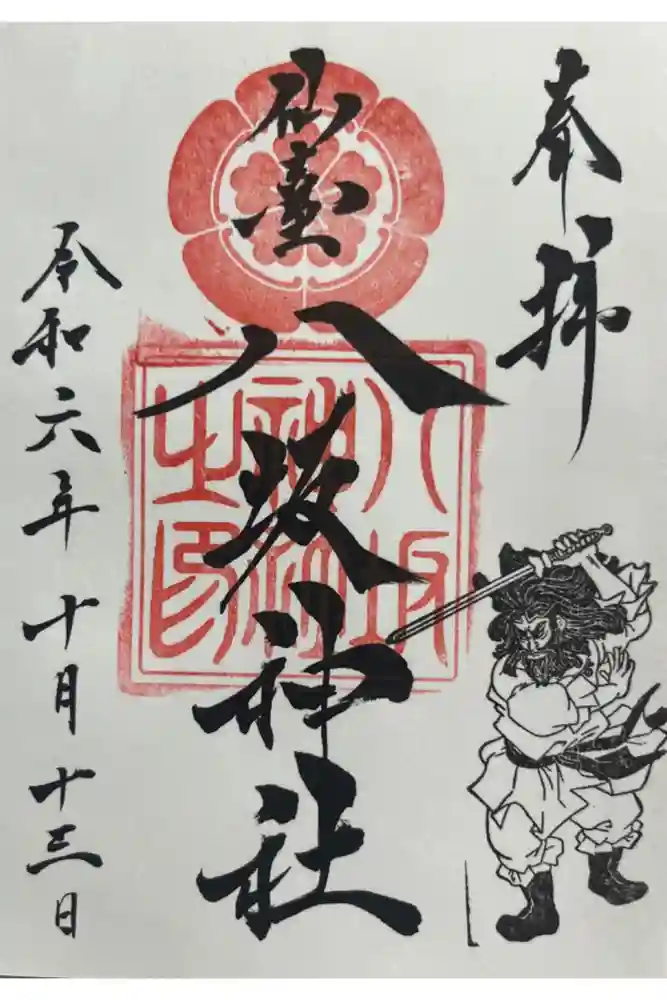 奉拝
仙臺
八坂神社
八坂
神社
之印
令和六年十月十三日